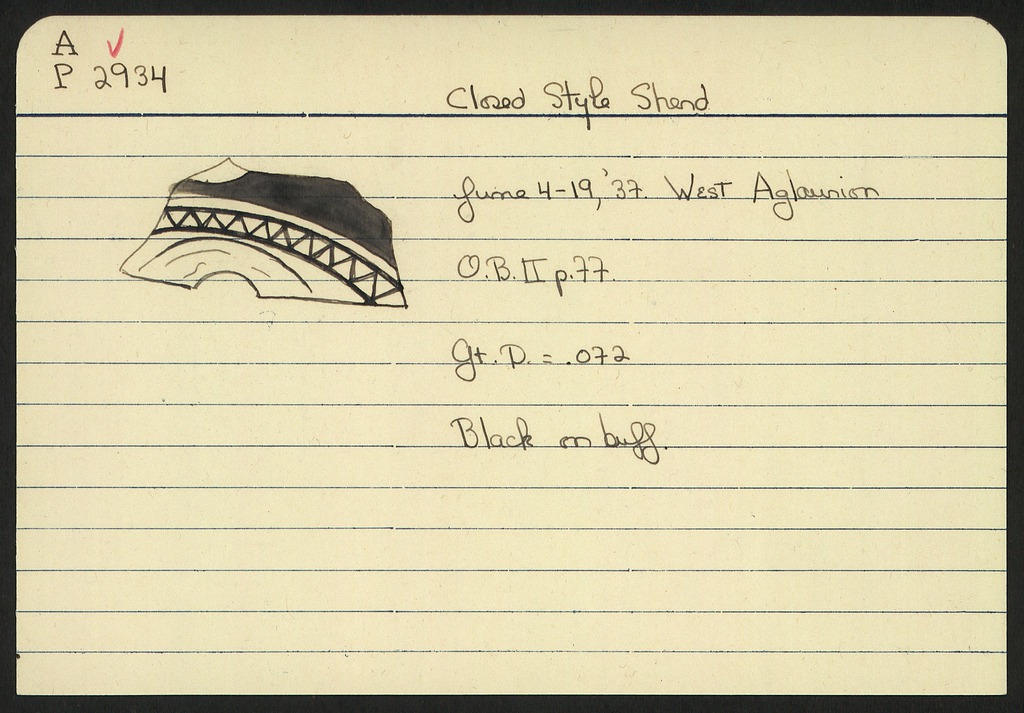 A ✓
P 2934
Closed Style Sherd
June 4-19, '37. West Aglaurion
O.B. II p.77.
Gt. D. = .072
Black on buff.